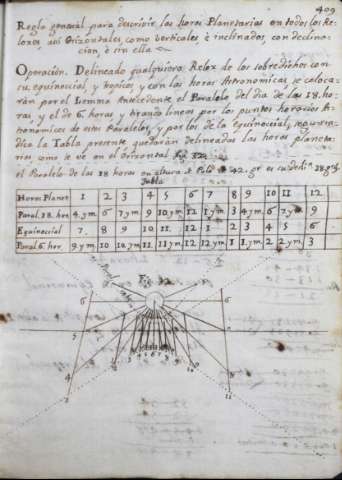 409
Regla general para describir las horas Planetarias en todos los Re-
loxes, asi Orizontales, como Verticales è inclinados con declina-
cion, è sin ella
Operacion. Delineado qualquiera Relox de los sobredichos con
su equinoccial, y tropicos, y con las horas Astronomicas se coloca-
rán por el Lemma Antecedente el Paralelo del dia de las 18. ho-
ras, y el de 6. horas y tirando lineas por los puntos horarios As-
tronomicos de estos Paralelos, y por los de la equinoccial, segun
dice la Tabla presente, quedarán delineadas las horas planeta-
rias como se ve en el Orizontal Fig. 32
el Paralelo de las 18 horas en altura de Polo de 42. gr es su decli.ⁿ 28 gr
Tabla
Horas Planet 1 2 3 4 5 6 7 8 9 10 11 12
Paral. 18. hor 4. y m. 6 7. y m 9 10. y m. 12 1. y m 3 4. y m. 6 7. y m 9
Equinoccial 7. 8 9 10 11. 12 1 2 3 4 5 6
Paral. 6 hor. 9. y m. 10 10. y m 11 11. y m. 12 12. y m 1 1. y m. 2 2. y m. 3
Fig. 32
6 6
5
4
2
11